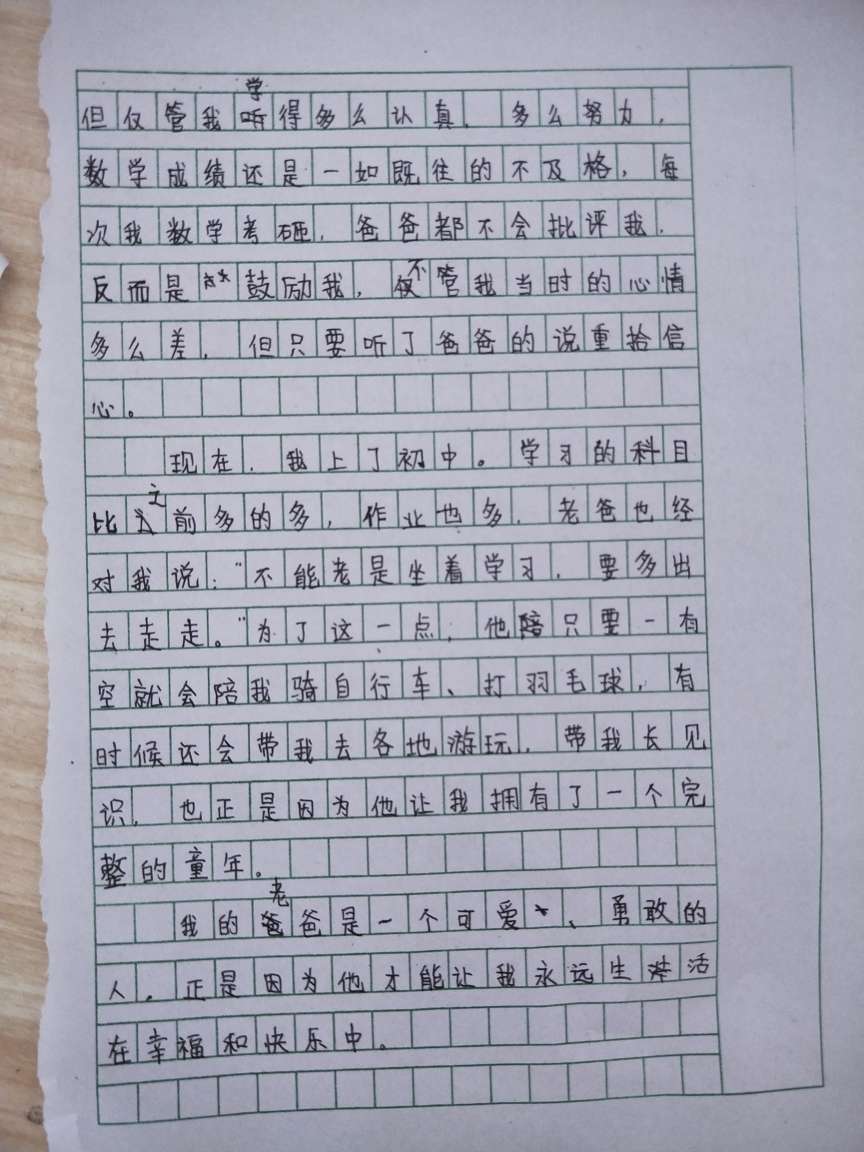 但仅管我学得多么认真，多么努力，
数学成绩还是一如既往的不及格，每
次我数学考砸，爸爸都不会批评我，
反而是鼓励我，不管我当时的心情
多么差，但只要听了爸爸的说重拾信
心。
现在，我上了初中。学习的科目
比之前多的多，作业也多，老爸也经
对我说：“不能老是坐着学习，要多出
去走走。”为了这一点，他只要一有
空就会陪我骑自行车、打羽毛球，有
时候还会带我去各地游玩，带我长见
识，也正是因为他让我拥有了一个完
整的童年。
我的老爸是一个可爱、勇敢的
人，正是因为他才能让我永远生活
在幸福和快乐中。